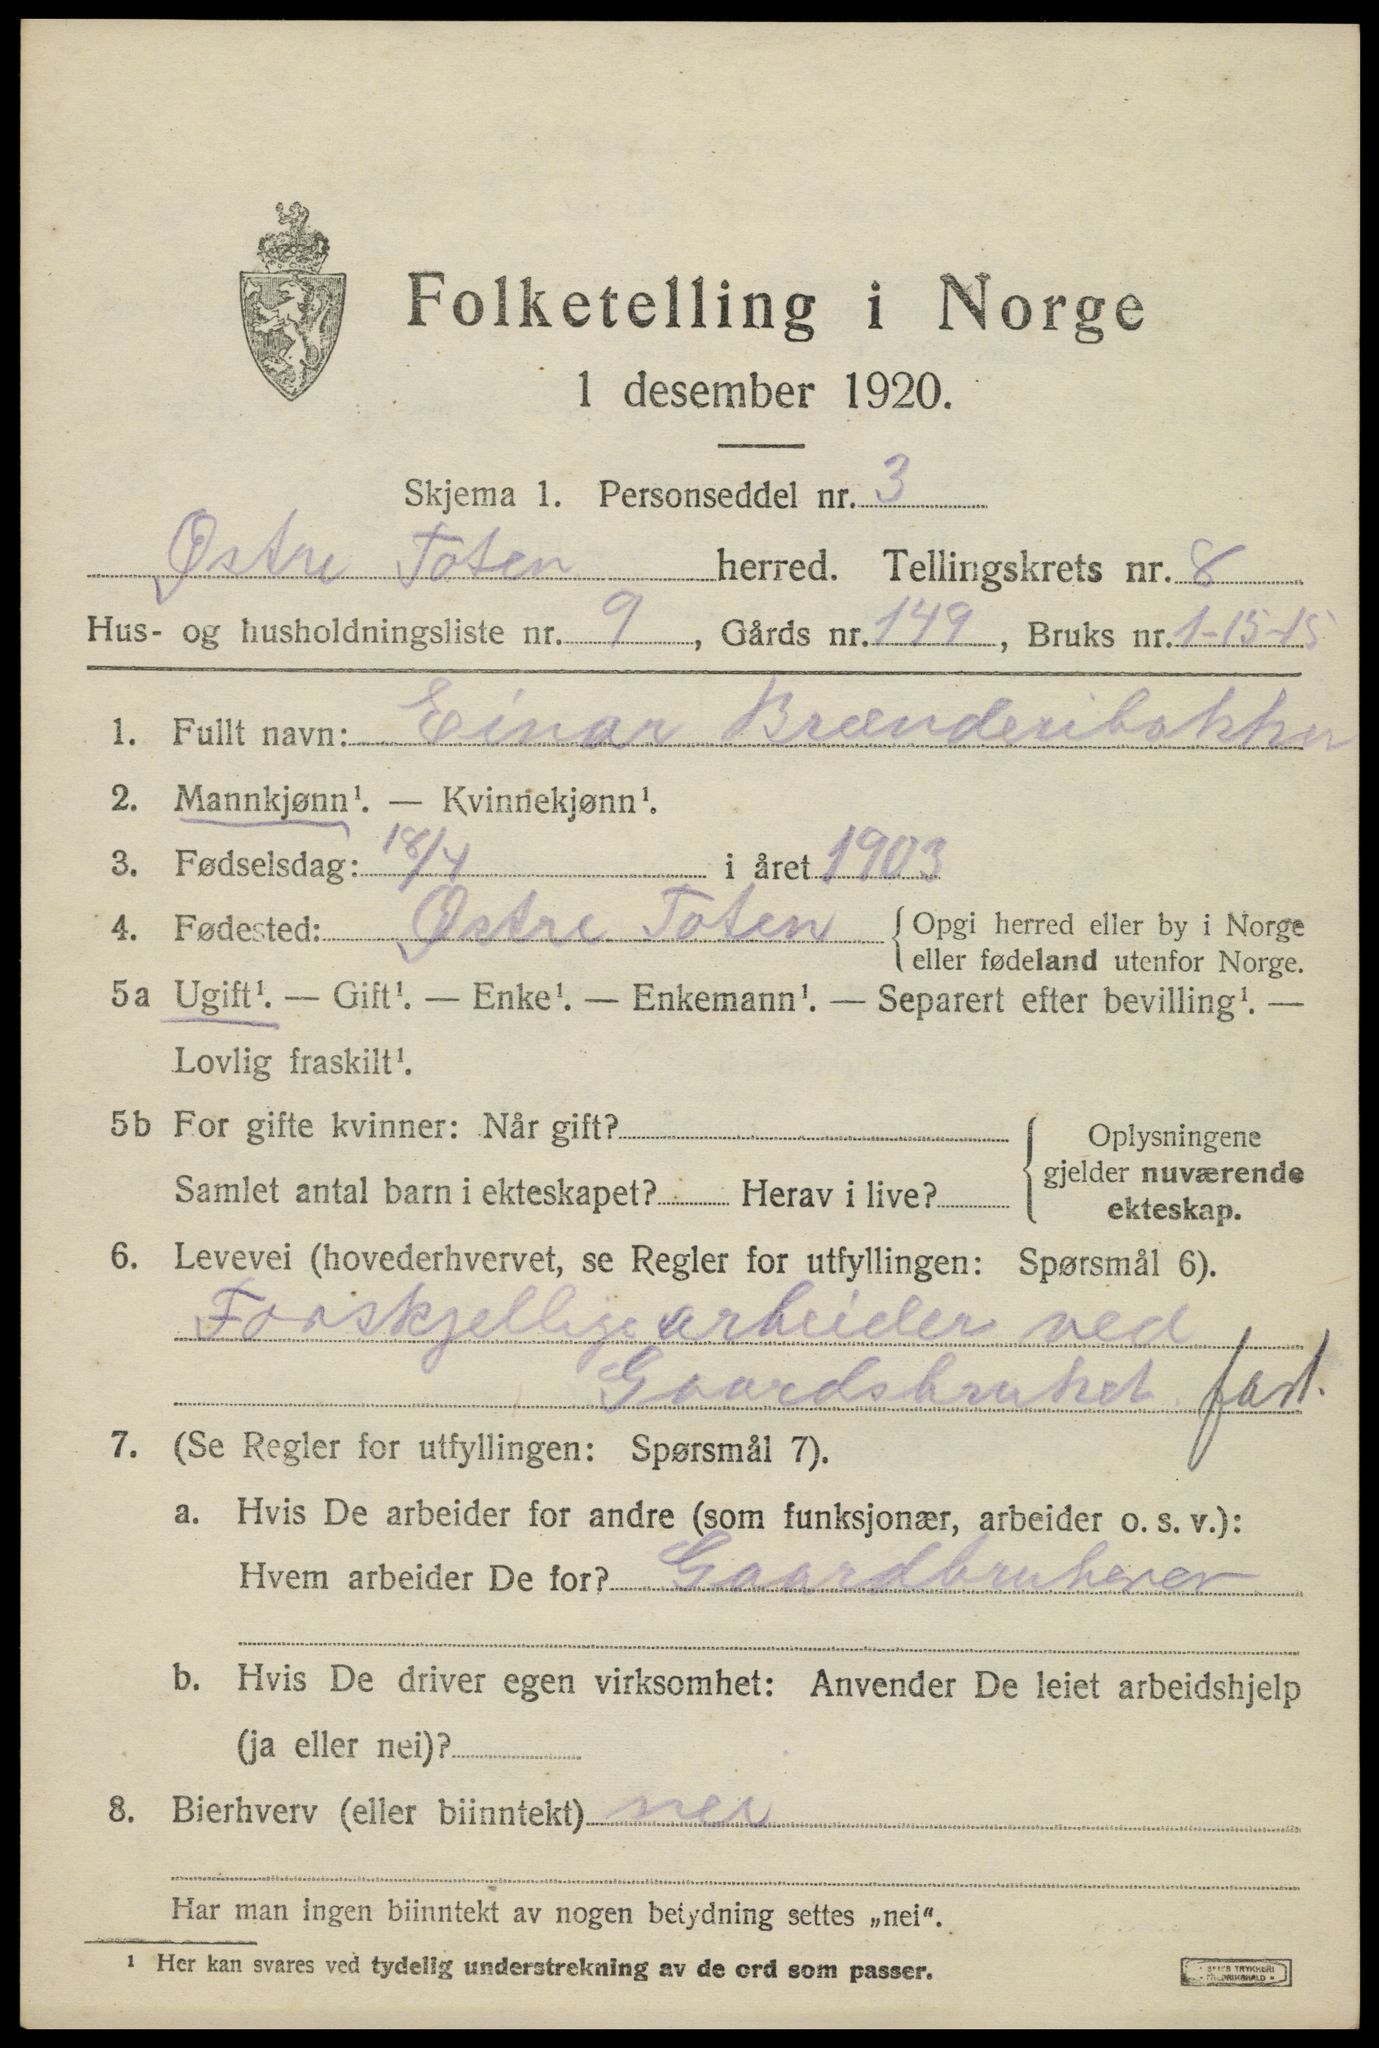 Folketelling i Norge
1 desember 1920.
Skjema 1. Personseddel nr. 3
Østre Toten herred. Tellingskrets nr. 8
Hus- og husholdningsliste nr. 9, Gårds nr. 149, Bruks nr. 1-15-15
1. Fullt navn: Einar Brænderibakken
2. Mannkjønn¹. — Kvinnekjønn¹.
3. Fødselsdag: 18/4 i året 1903
4. Fødested: Østre Toten { Opgi herred eller by i Norge
eller fødeland utenfor Norge.
5a Ugift¹. — Gift¹. — Enke¹. — Enkemann¹. — Separert efter bevilling¹. —
Lovlig fraskilt¹.
5b For gifte kvinner: Når gift?
Samlet antal barn i ekteskapet? Herav i live?
Oplysningene
gjelder nuværende
ekteskap.
6. Levevei (hovederhvervet, se Regler for utfyllingen: Spørsmål 6).
Forskjellige arbeider ved
Gaardsbruket fast.
7. (Se Regler for utfyllingen: Spørsmål 7).
a. Hvis De arbeider for andre (som funksjonær, arbeider o. s. v.):
Hvem arbeider De for? Gaardbruker
b. Hvis De driver egen virksomhet: Anvender De leiet arbeidshjelp
(ja eller nei)?
8. Bierhverv (eller biinntekt) nei
Har man ingen biinntekt av nogen betydning settes „nei“.
¹ Her kan svares ved tydelig understrekning av de ord som passer.
TRYKKERI
FREDRIKSHALD